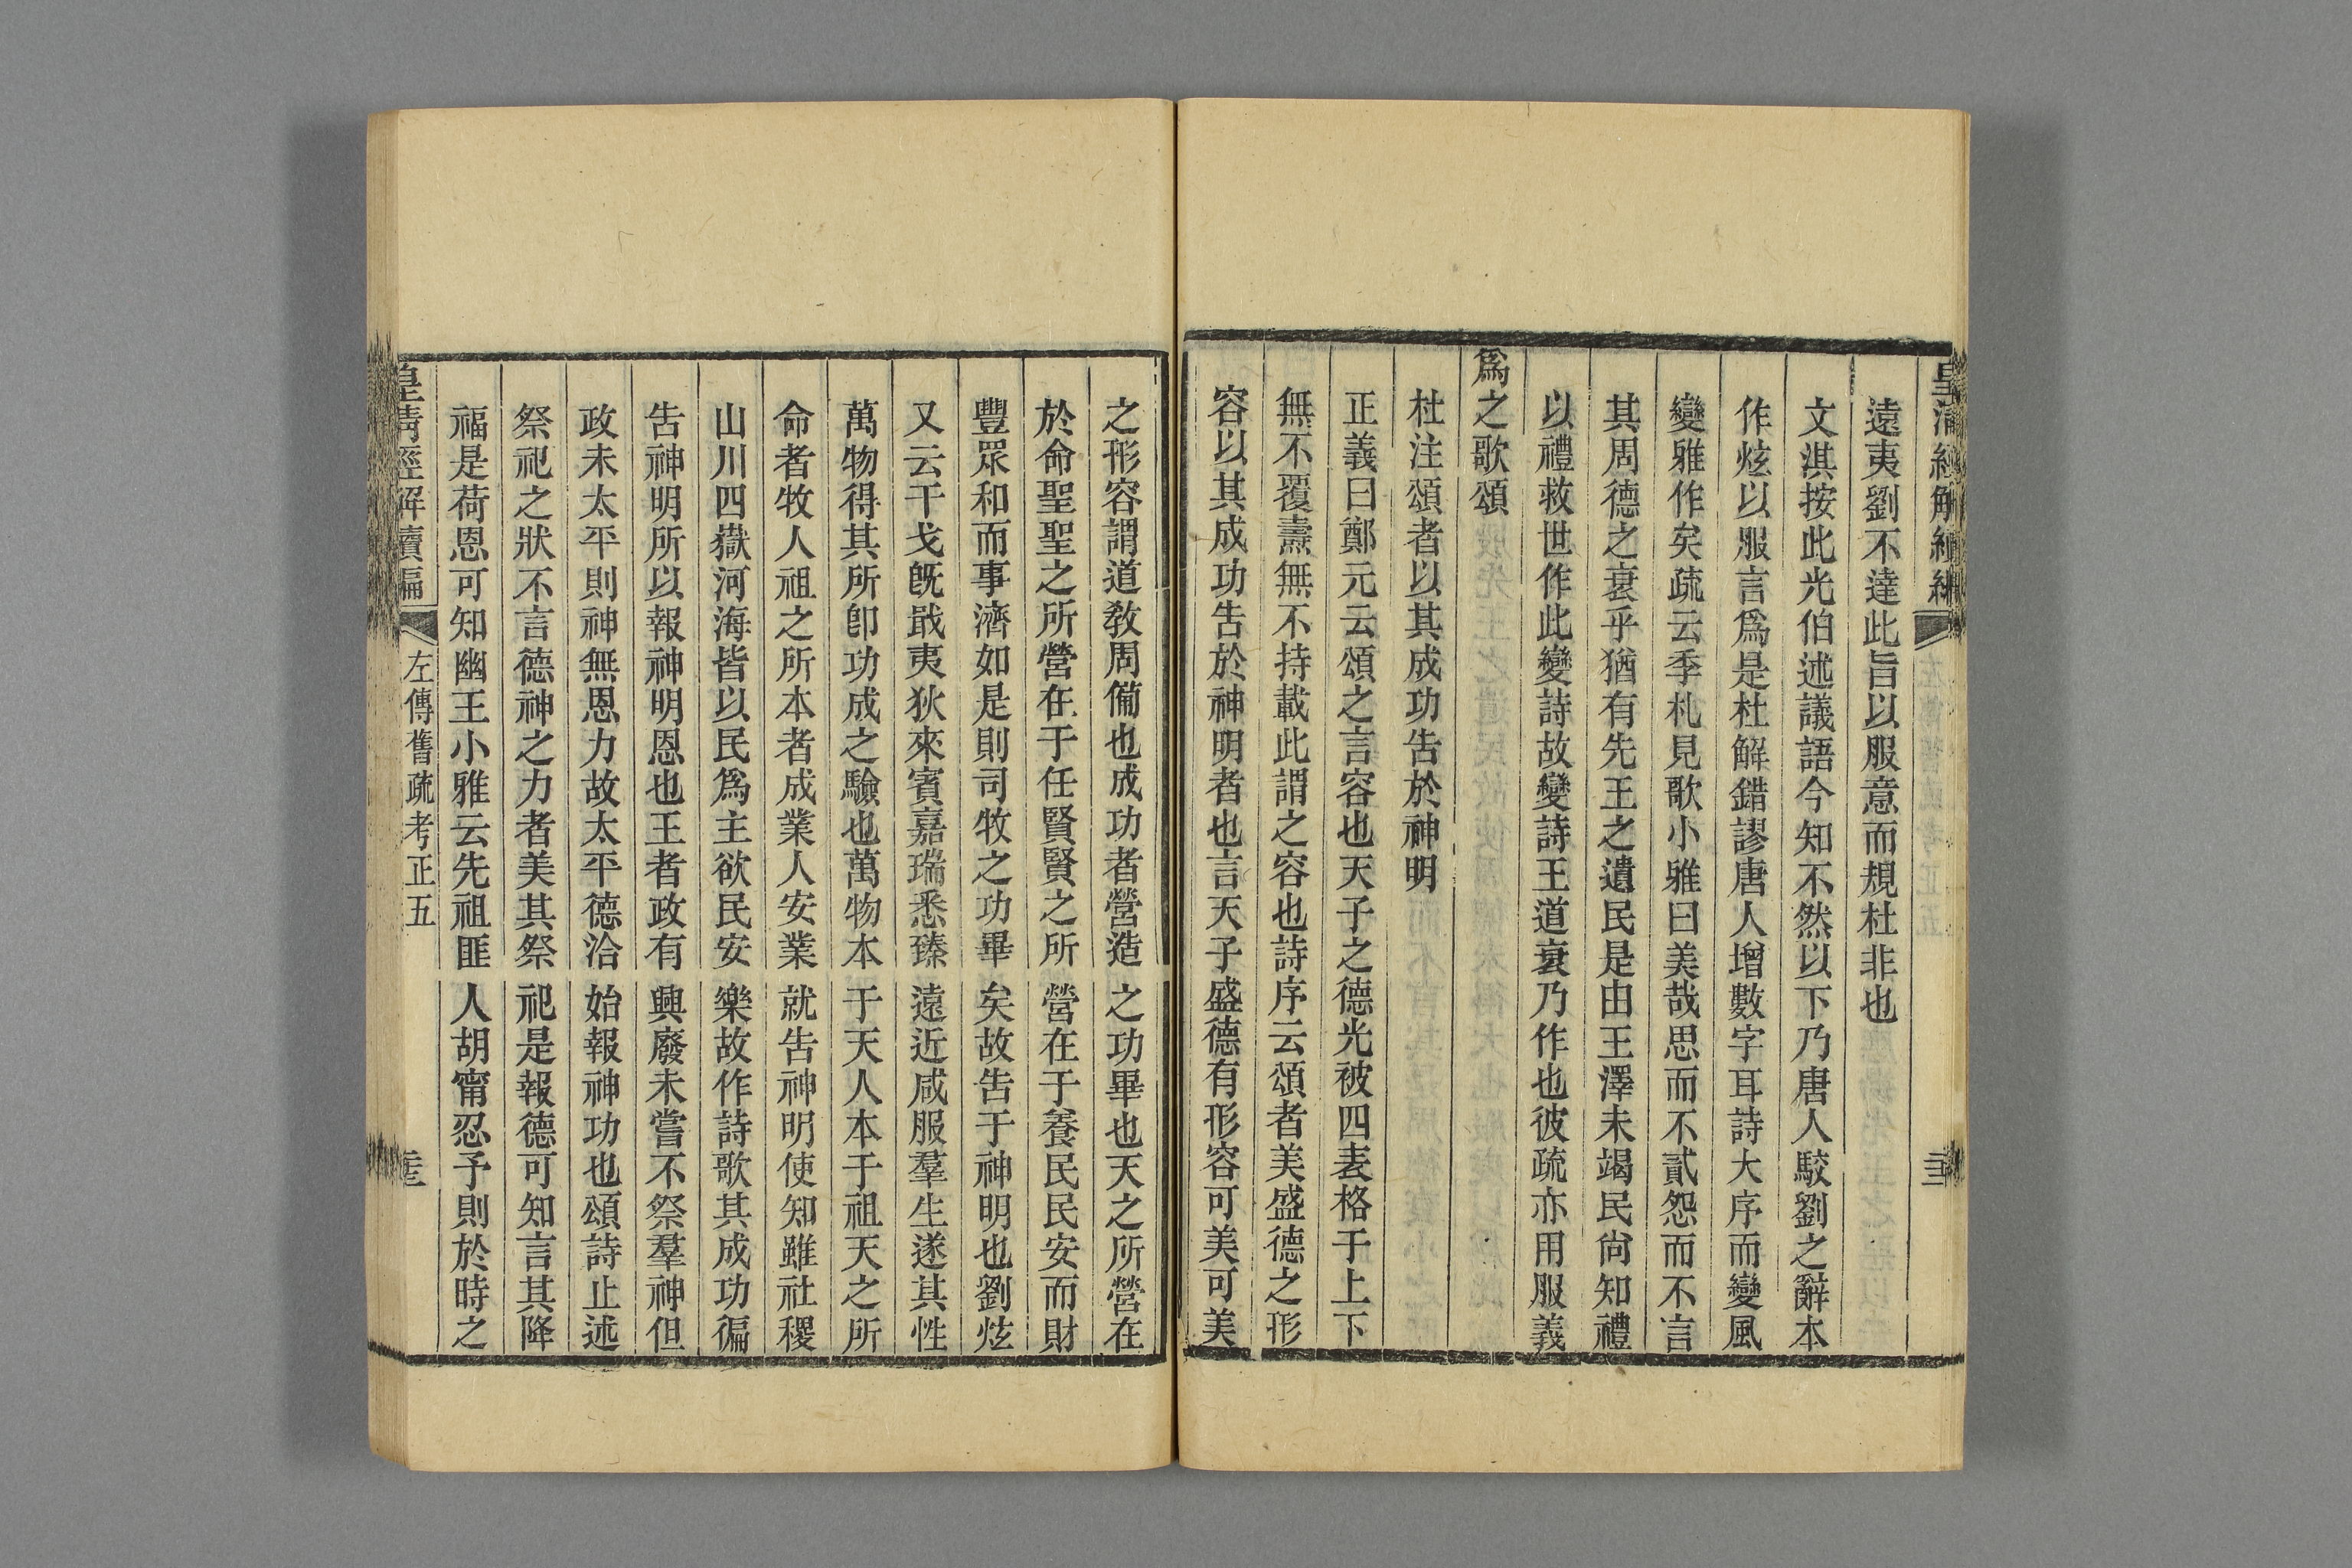 皇清經解續編
遠夷劉不達此旨以服意而規杜非也
文淇按此光伯述議語今知不然以下乃唐人駮劉之辭本
作炫以服言爲是杜解錯謬唐人增數字耳詩大序而變風
變雅作矣疏云季札見歌小雅曰美哉思而不貳怨而不言
其周德之衰乎猶有先王之遺民是由王澤未竭民尙知禮
以禮救世作此變詩故變詩王道衰乃作也彼疏亦用服義
爲之歌頌
杜注頌者以其成功吿於神明
正義曰鄭元云頌之言容也天子之德光被四表格于上下
無不覆燾無不持載此謂之容也詩序云頌者美盛德之形
容以其成功吿於神明者也言天子盛德有形容可美可美
之形容謂道敎周備也成功者營造之功畢也天之所營在
於命聖聖之所營在于任賢賢之所營在于養民民安而財
豐眾和而事濟如是則司牧之功畢矣故吿于神明也劉炫
又云干戈旣戢夷狄來賓嘉瑞悉臻遠近咸服羣生遂其性
萬物得其所卽功成之驗也萬物本于天人本于祖天之所
命者牧人祖之所本者成業人安業就吿神明使知雖社稷
山川四嶽河海皆以民爲主欲民安樂故作詩歌其成功徧
吿神明所以報神明恩也王者政有興廢未嘗不祭羣神但
政未太平則神無恩力故太平德洽始報神功也頌詩止述
祭祀之狀不言德神之力者美其祭祀是報德可知言其降
福是荷恩可知幽王小雅云先祖匪人胡甯忍予則於時之
皇清經解續編
左傳舊疏考正五